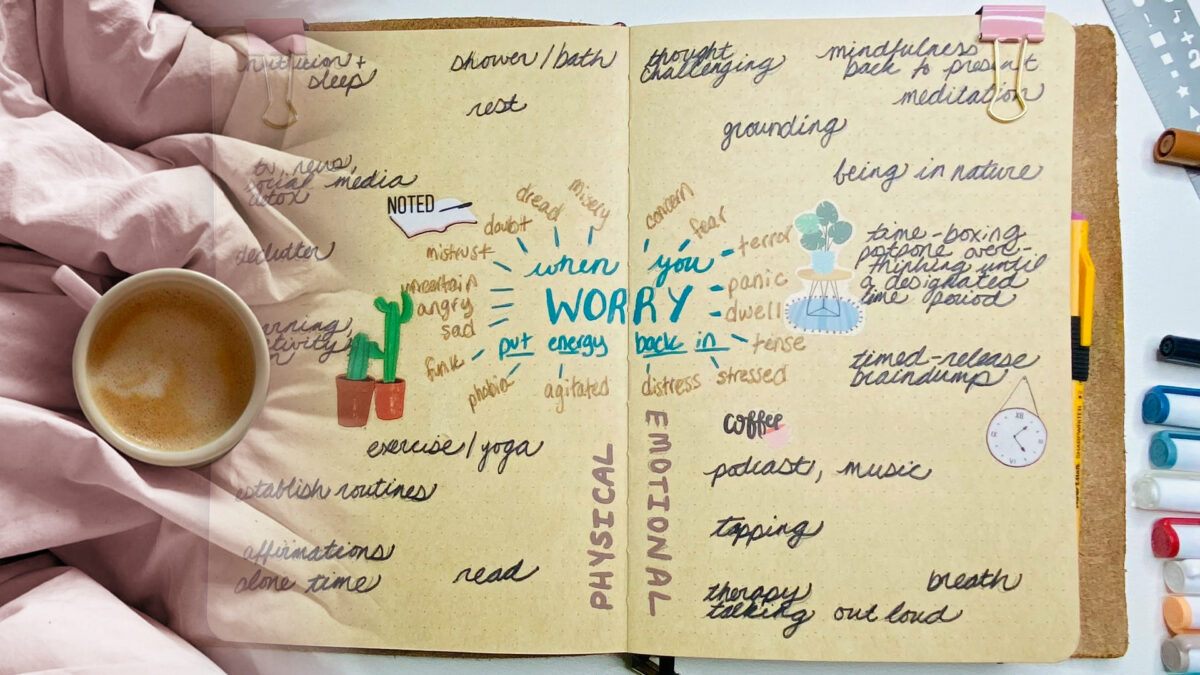 nutrition +
sleep
shower/bath
rest
tv news,
social media
detox
NOTED
declutter
exercise/yoga
establish routines
affirmations
alone time
read
PHYSICAL
when you
WORRY
put energy back in
doubt
dread
misery
concern
fear
terror
panic
dwell
tense
stressed
distress
agitated
phobia
funk
sad
angry
uncertain
mistrust
thought
challenging
mindfulness
back to present
meditation
grounding
being in nature
time-boxing
potspone over-
thinking until
a designated
time period
timed-release
braindump
coffee
podcast, music
tapping
therapy
talking out loud
breath
EMOTIONAL